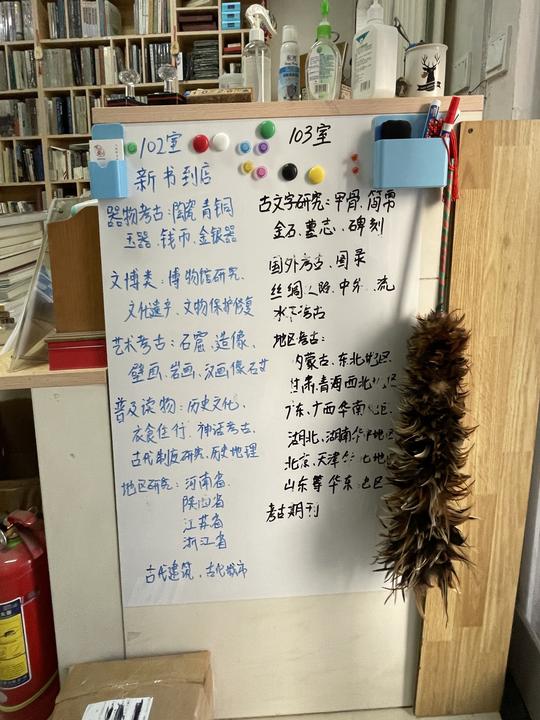 102室
新书到店
器物考古:陶瓷 青铜
玉器、钱币、金银器
文博类:博物馆研究、
文化遗产、文物保护修复
艺术考古:石窟、造像、
壁画、岩画、汉画像石
普及读物:历史文化、
衣食住行、神话考古、
古代制度研究、历史地理
地区研究:河南省
陕西省
江苏省
浙江省
古代建筑、古代城市
103室
古文字研究:甲骨、简帛
金石、墓志、碑刻
国外考古、图录
丝绸之路、中外 流
水下考古
地区考古:
内蒙古、东北地区
甘肃青海西北
广东、广西华南 区
湖北、湖南华中地区
北京、天津华 地
山东等华东 区
考古期刊